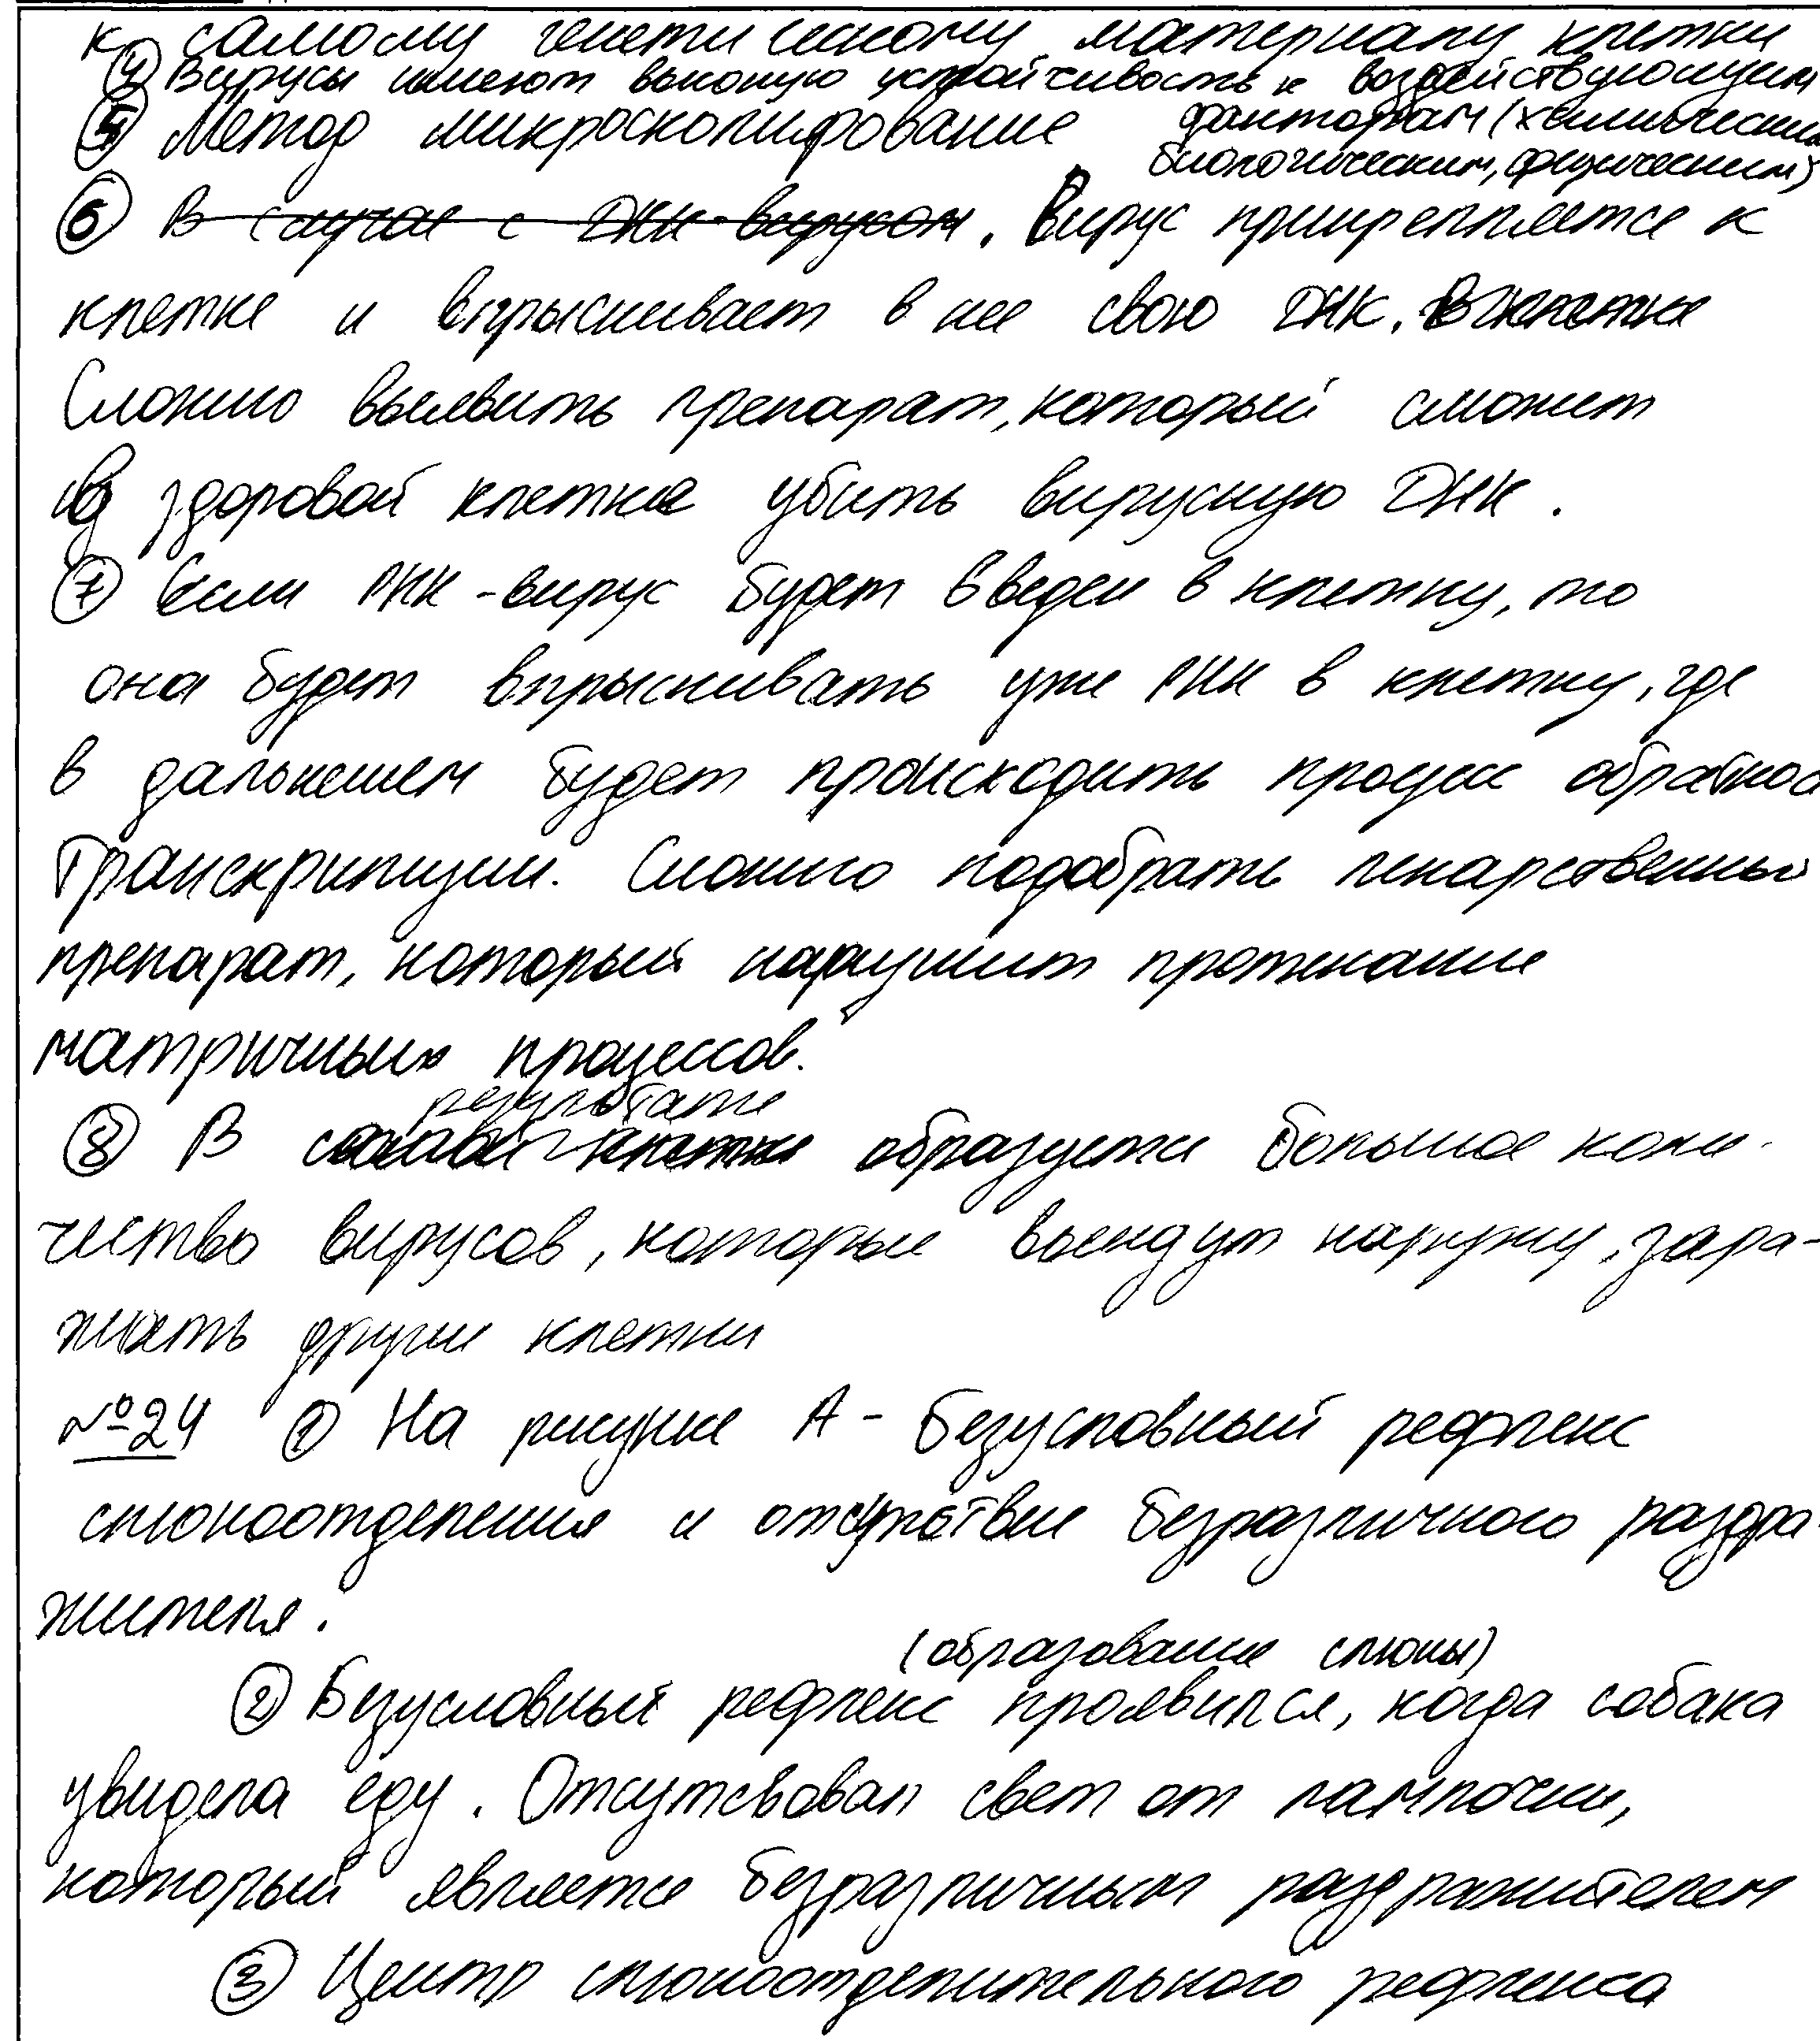 к самому генетическому материалу клетки
④ Вирусы имеют высокую устойчивость к воздействующим
факторам (химическим
биологическим, физическим)
⑤ Метод микроскопирование
⑥ В случае с ДНК-вирусом. Вирус прикрепляется к
клетке и впрыскивает в нее свою ДНК. В клетке
Сложно выявить препарат, который сможет
в здоровой клетке убить вирусную ДНК.
⑦ Если РНК-вирус будет введен в клетку, то
она будет впрыскивать уже РНК в клетку, где
в дальнешем будет происходить процесс обратной
транскрипции. Сложно подобрать лекарственный
препарат, который нарушит протекание
матричных процессов.
результате
⑧ В самой клетке образуется большое коли-
чество вирусов, которые выйдут наружу, зара-
жать другие клетки
№24 ① На рисунке А - безусловный рефлекс
слюноотделения и отсутствие безразличного раздра-
жителя.
(образование слюны)
② Безусловный рефлекс проявился, когда собака
увидела еду. Отсутсвовал свет от лампочки,
который является безразличным раздражителем
③ Центр слюноотделительного рефлекса